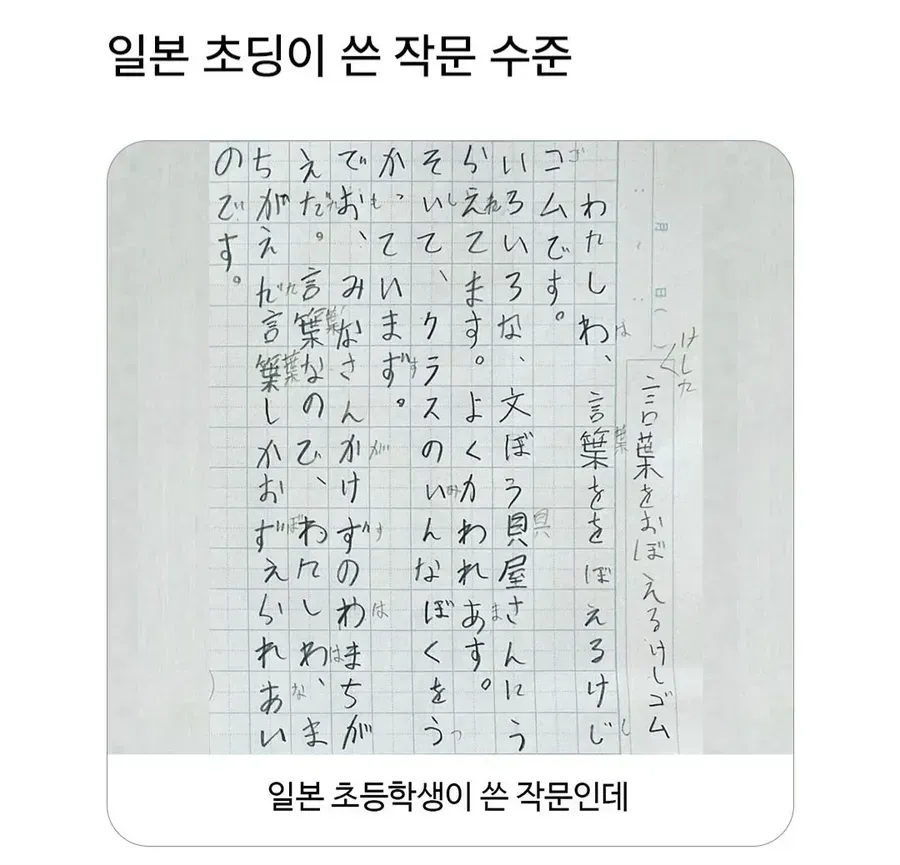 일본 초딩이 쓴 작문 수준
月 日（
けした
言葉をおぼえるけしゴム
わたしわ、言葉ををぼえるけじ
は 葉 し
コムです。
ゴ
いろいろな、文ぼう貝屋さんにう
具
らえてます。よくかわれあす。
れ ま
そいて、クラスのいんなぼくをう
し み つ
かっていまず。
す
でお、みなさんかけずのわまちが
も が す は
えだ。言葉なので、わたしわ、ま
た 葉 は
ちがえだ言葉しかおずえられあい
た 葉 ぼ な
のです。
일본 초등학생이 쓴 작문인데